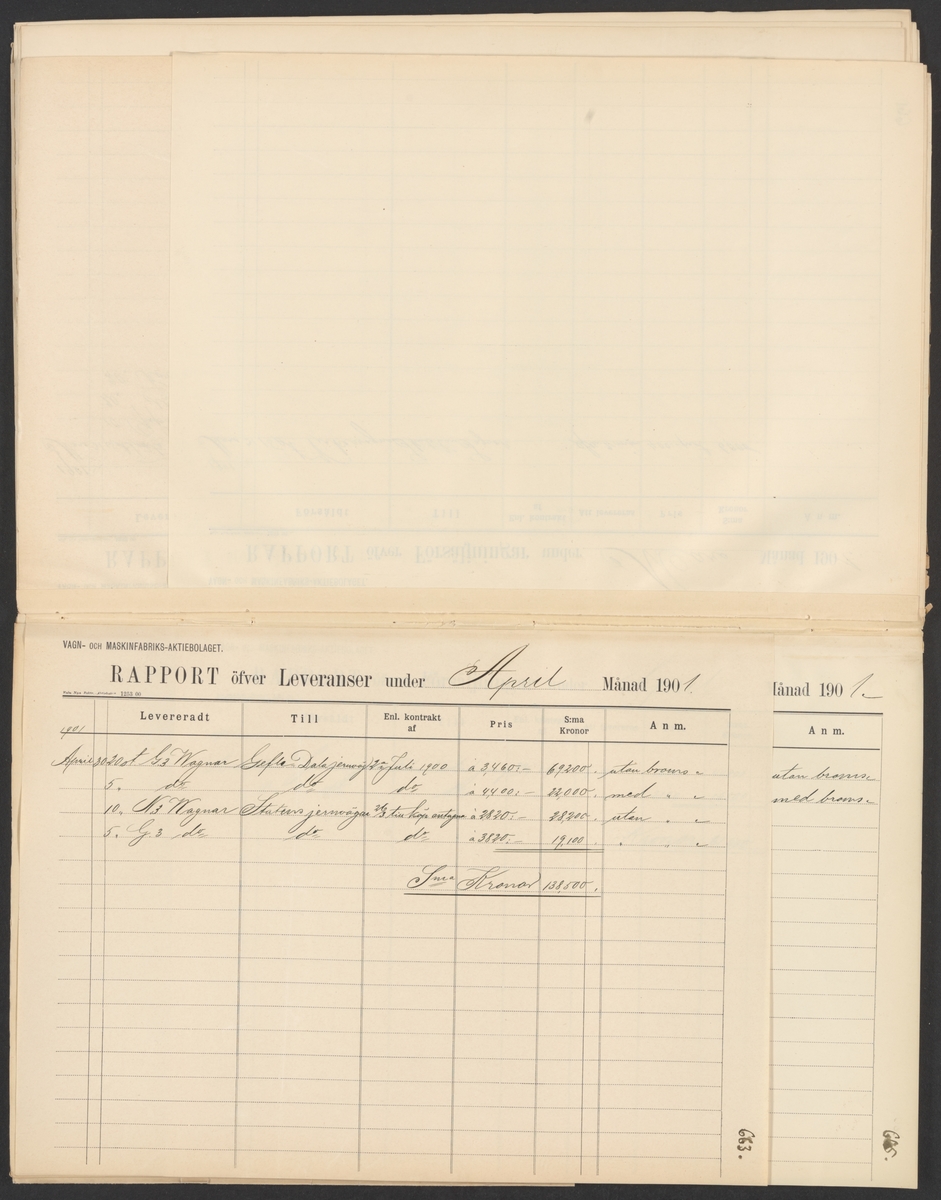 VAGN- OCH MASKINFABRIKS-AKTIEBOLAGET.
RAPPORT öfver Leveranser under April Månad 1901.
Levereradt Till Enl. kontrakt af Pris S:ma Kronor Anm.
1901
April 30 20 st G3 Wagnar Gefle-Dala jernväg Juli 1900 à 3,460:- 69,200. utan broms
5 " do do do à 4400:- 22,000. med " "
10 " N3 Wagnar Statens jernvägar à 2820:- 28,200. utan " "
5 " G.3 do do do à 3820:- 19,100. " " "
S:ma Kronor 138,500.
683.
Månad 1901
Anm.
utan broms
med broms